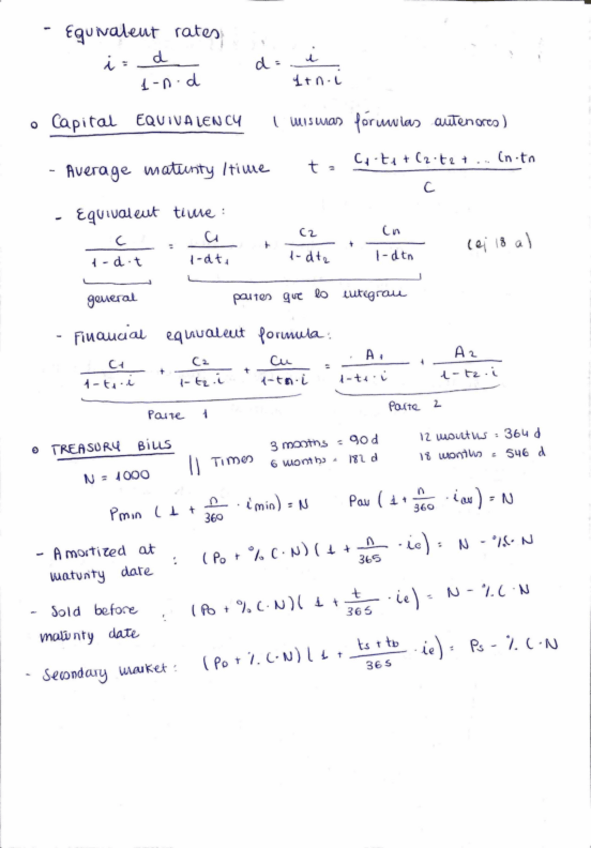 - Equivalent rates
i = d / 1-n·d    d = i / 1+n·i
o Capital EQUIVALENCY ( mismas fórmulas anteriores)
- Average maturity /time   t = C1·t1 + C2·t2 + ... Cn·tn / C
- Equivalent time :
C / 1-d·t = C1 / 1-dt1 + C2 / 1-dt2 + Cn / 1-dtn   (ej 18 a)
general   partes que lo integran
- Financial equivalent formula :
C1 / 1-t1·i + C2 / 1-t2·i + Cn / 1-tn·i = A1 / 1-t1·i + A2 / 1-t2·i
Parte 1   Parte 2
o TREASURY Bills
N = 1000 || Times 3 months = 90 d   12 months = 364 d
6 months = 182 d   18 months = 546 d
Pmin ( 1 + n/360 · imin) = N   Pav ( 1 + n/360 · iav) = N
- Amortized at maturity date : (Po + % C·N) ( 1 + n/365 · ie) = N - %·N
- Sold before maturity date : (Po + % C·N)( 1 + t/365 · ie) = N - % C·N
- Secondary market : (Po + %. C·N) ( 1 + ts + tb/365 · ie) = Ps - %. C·N